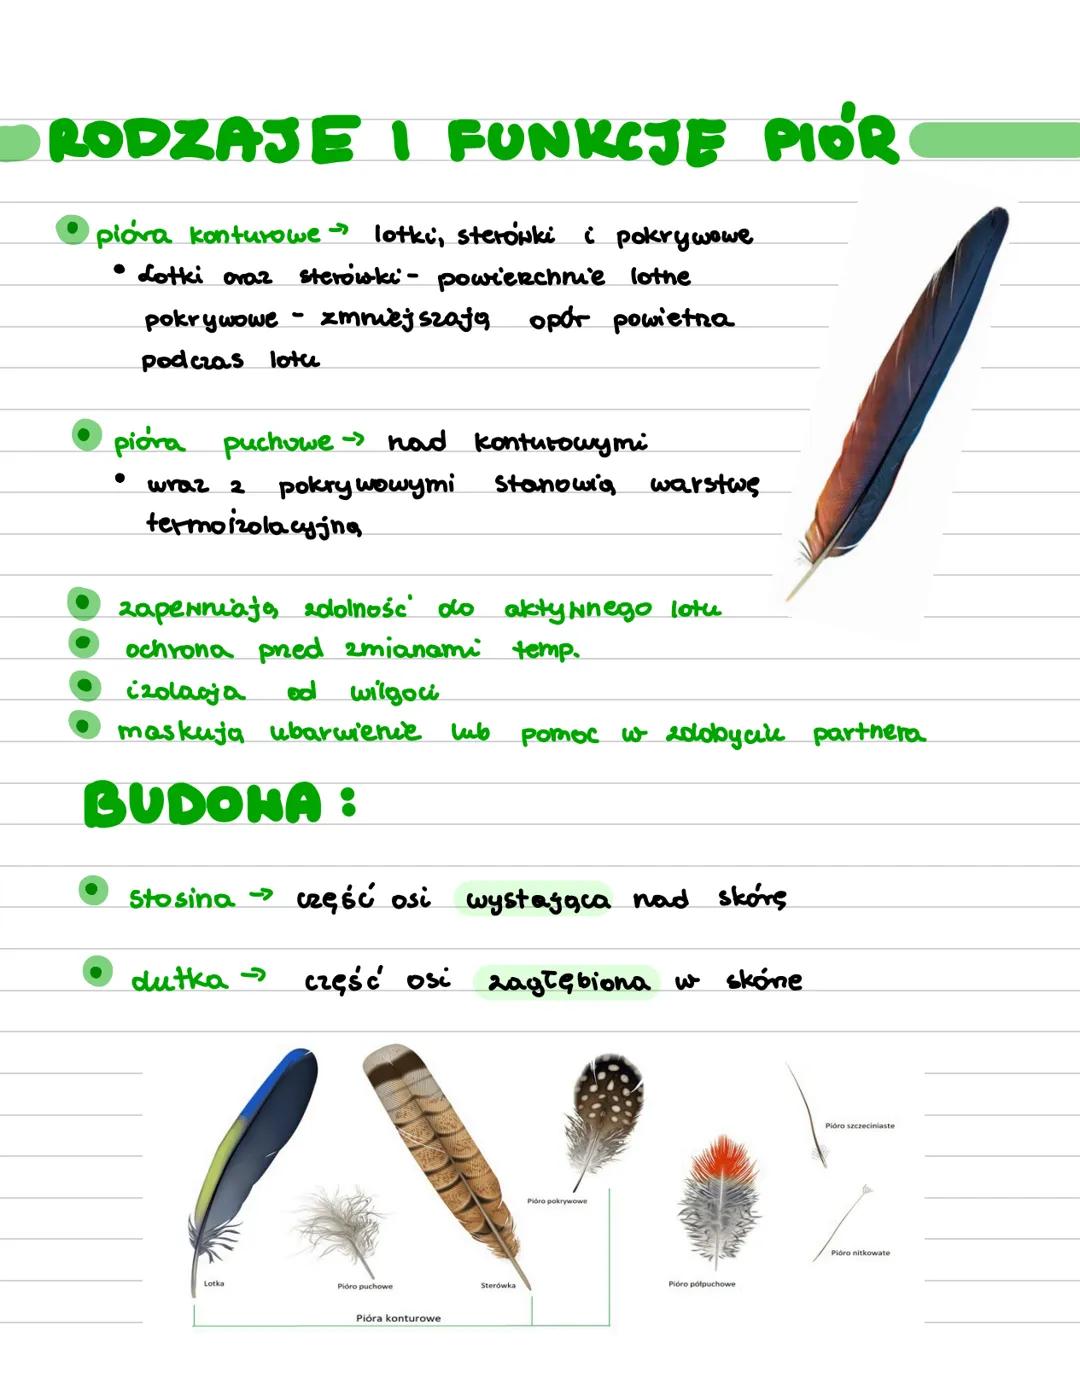 RODZAJE I FUNKCJE PIÓR
pióra konturowe → lotki, sterówki i pokrywowe
• Lotki oraz sterówki - powierzchnie lotne
pokrywowe - zmniejszają opór powietrza
podczas lotu
pióra puchowe → nad konturowymi
• wraz z pokrywowymi stanowią warstwę
termoizolacyjną
zapewniają zdolność do aktywnego lotu
ochrona przed zmianami temp.
izolacja od wilgoci
maskują ubarwienie lub pomoc w zdobyciu partnera
BUDOWA:
Stosina → część osi wystająca nad skórę
dutka → część osi zagłębiona w skórze
Pióro szczeciniaste
Pióro pokrywowe
Pióro nitkowate
Lotka
Pióro puchowe
Sterówka
Pióro półpuchowe
Pióra konturowe